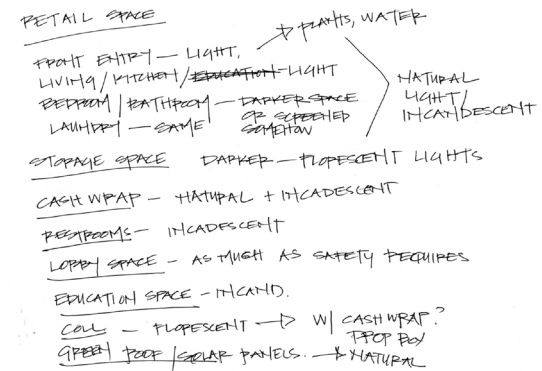 RETAIL SPACE
FRONT ENTRY — LIGHT. → PLANTS, WATER
LIVING / KITCHEN / EDUCATION — LIGHT
BEDROOM / BATHROOM — DARKER SPACE
OR SCREENED
LAUNDRY — SAME SOMEHOW
NATURAL
LIGHT /
INCANDESCENT
STORAGE SPACE DARKER — FLORESCENT LIGHTS
CASH WRAP — NATURAL + INCADESCENT
RESTROOMS — INCADESCENT
LOBBY SPACE — AS MUCH AS SAFETY REQUIRES
EDUCATION SPACE — INCAND.
COLL — FLORESCENT → W/ CASH WRAP?
DROP BOX
GREEN ROOF / SOLAR PANELS. → NATURAL